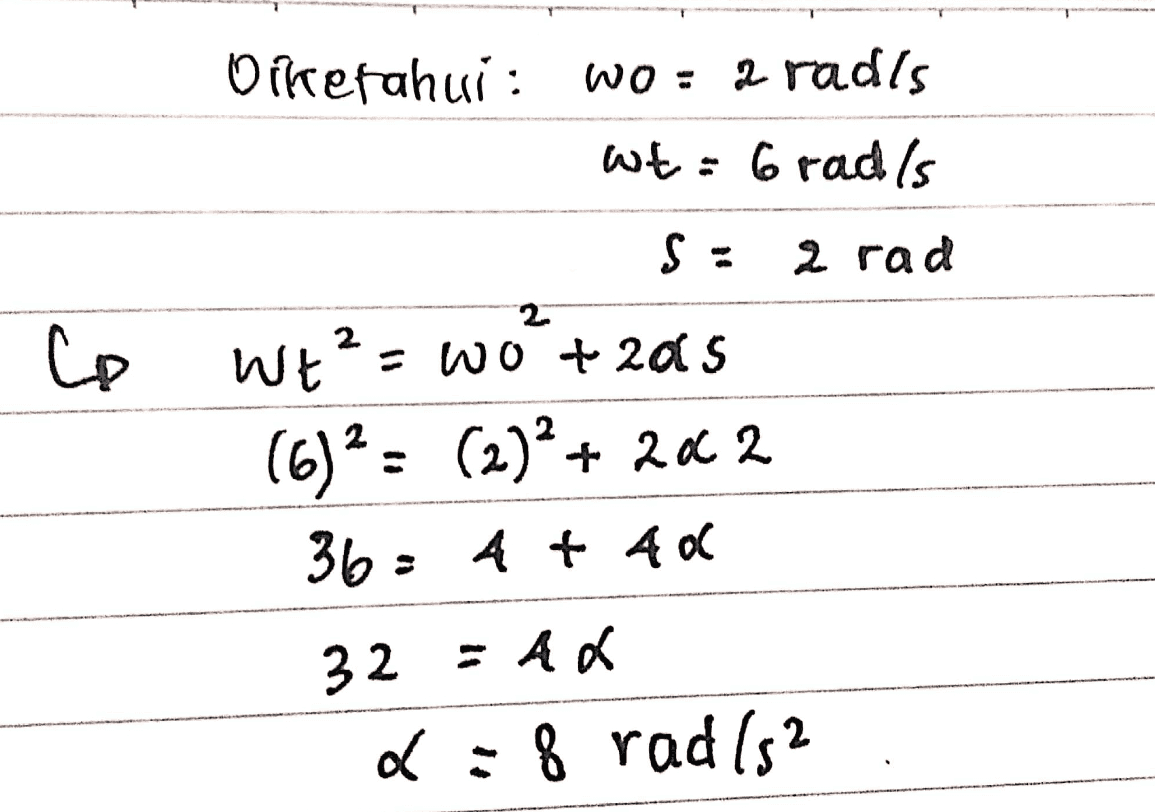 Diketahui : wo = 2 rad/s
wt = 6 rad/s
S = 2 rad
wt² = wo² + 2αs
(6)² = (2)² + 2α2
36 = 4 + 4α
32 = 4α
α = 8 rad/s².